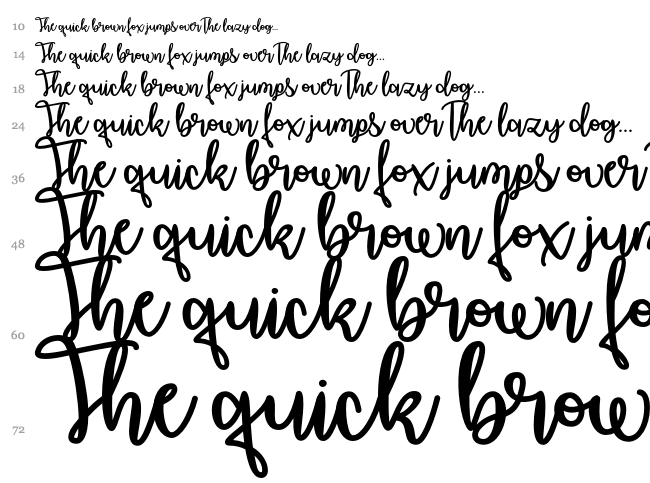 10 The quick brown fox jumps over The lazy dog...
14 The quick brown fox jumps over The lazy dog...
18 The quick brown fox jumps over The lazy dog...
24 The quick brown fox jumps over The lazy dog...
36 The quick brown fox jumps over
48 The quick brown fox jum
60 The quick brown fo
72 The quick brow